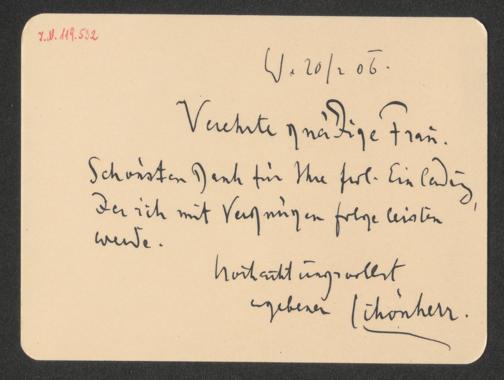 I.N. 119.532
W. 20/2 06.
Verehrte gnädige Frau.
Schönsten Dank für Ihre frdl. Einladung,
der ich mit Vergnügen folge leisten
werde.
hochachtungsvollst
ergebener Schönherr.